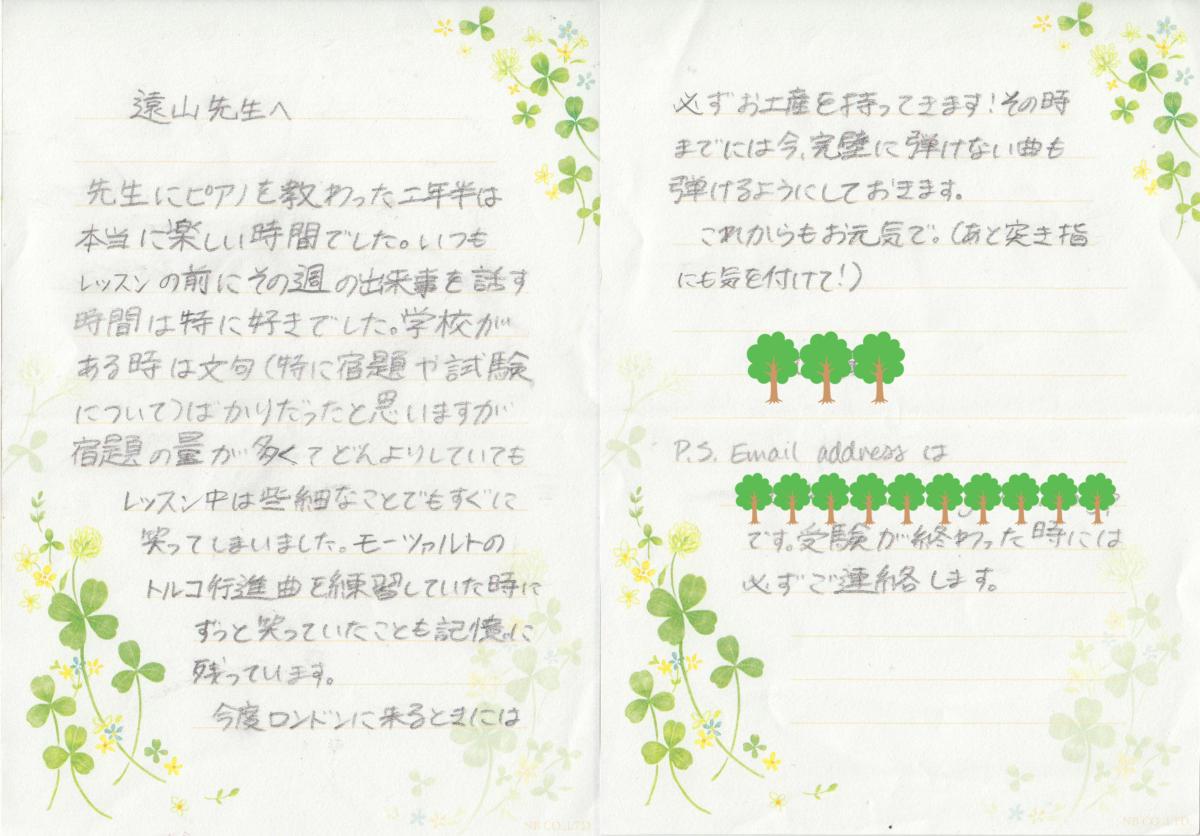 遠山先生へ
先生にピアノを教わった二年半は
本当に楽しい時間でした。いつも
レッスンの前にその週の出来事を話す
時間は特に好きでした。学校が
ある時は文句(特に宿題や試験
について)ばかりだったと思いますが
宿題の量が多くてどんよりしていても
レッスン中は些細なことでもすぐに
笑ってしまいました。モーツァルトの
トルコ行進曲を練習していた時に
ずっと笑っていたことも記憶に
残っています。
今度ロンドンに来るときには
必ずお土産を持ってきます!その時
までには今、完璧に弾けない曲も
弾けるようにしておきます。
これからもお元気で。(あと突き指
にも気を付けて!)
P.S. Email address は
です。受験が終わった時には
必ずご連絡します。
NB CO.,LTD
NB CO.,LTD